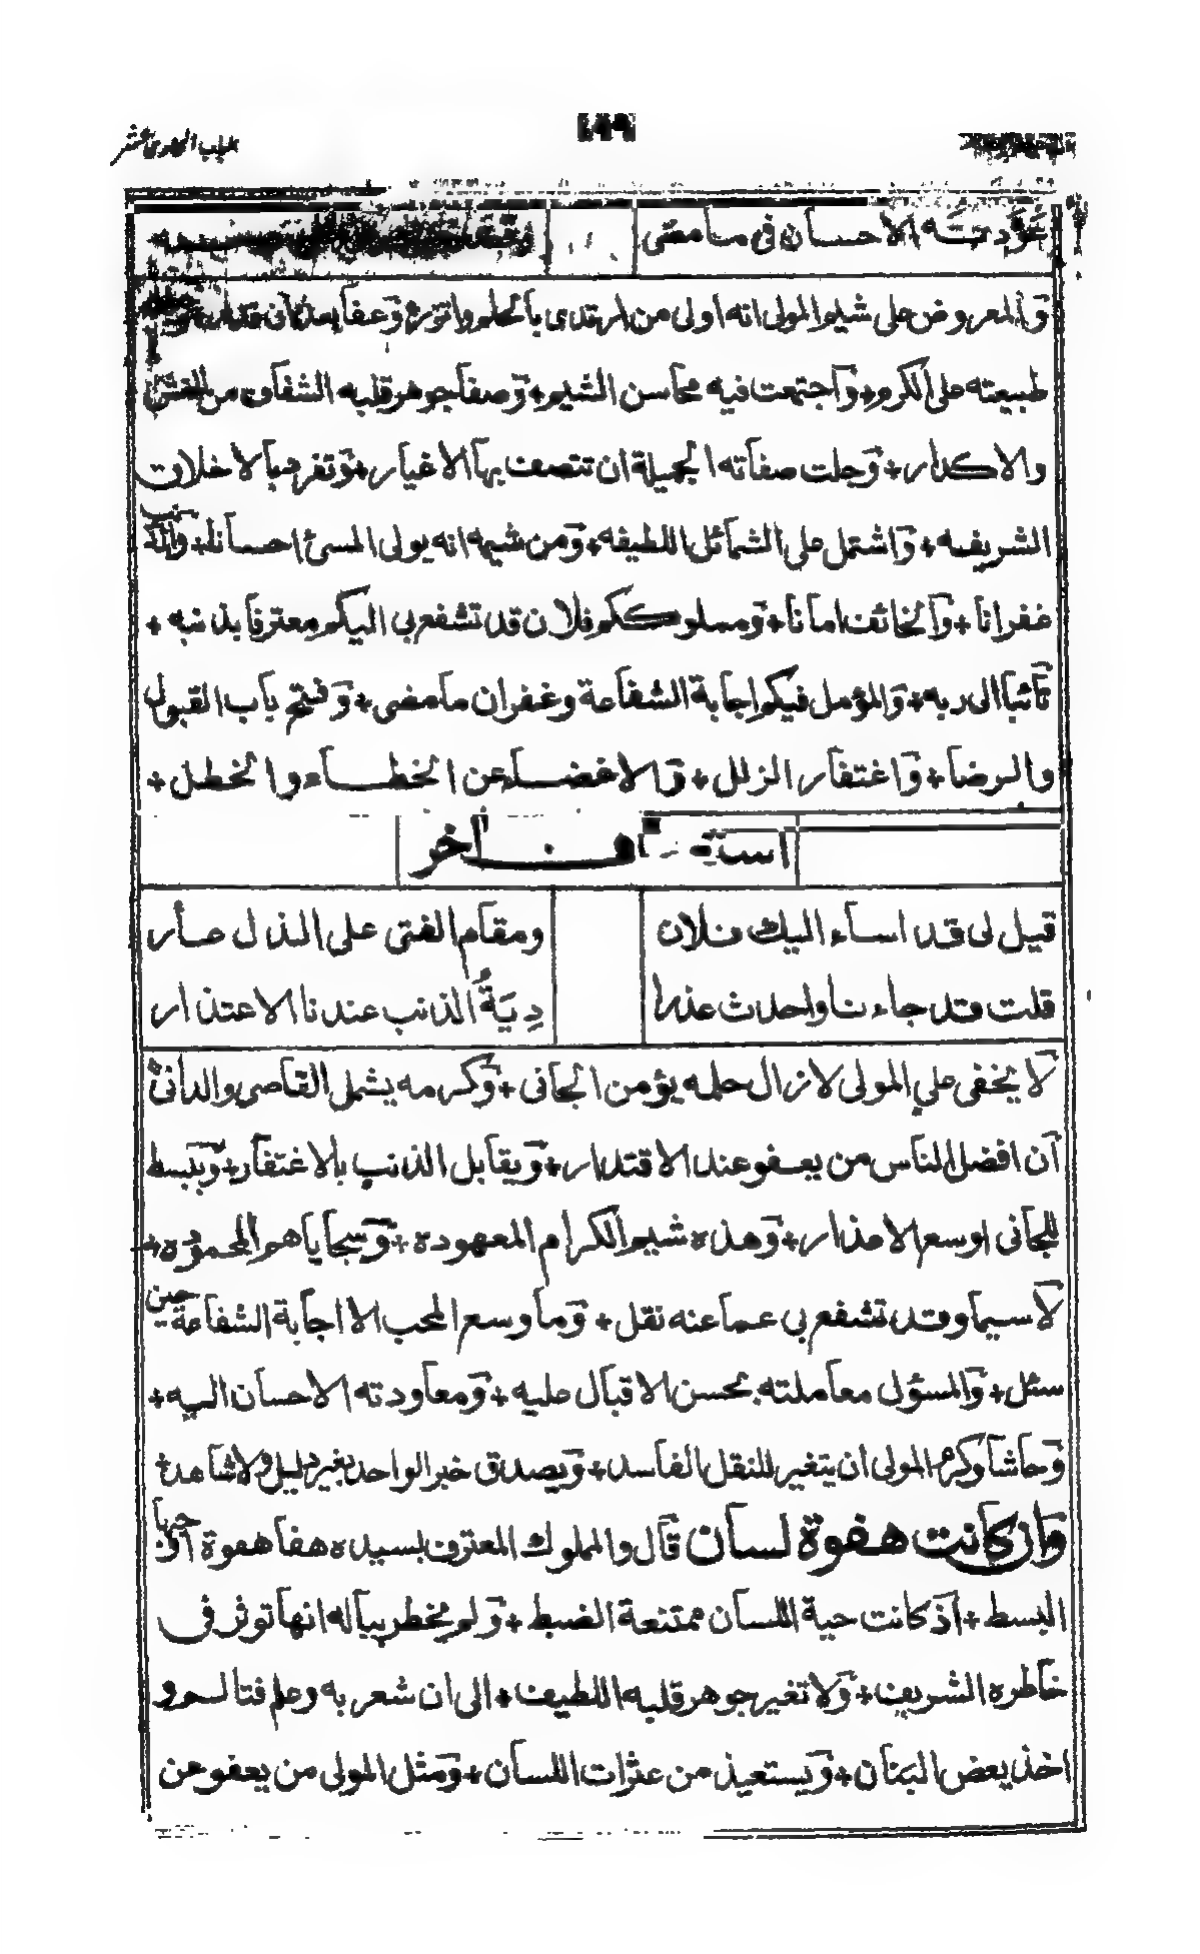 الباب الحادي عشر
عَوَّدتَه الاحسان في ما مضى
والمعروض على شيم المولى انه اولى من ارتدى بالحلم واتزر وعفا بعد ان قدر
طبيعته على الكرم + واجتمعت فيه محاسن الشيم + وصفا جوهر قلبه الشفاف من الغش
والاكدار + وجلت صفاته الجميلة ان تتصف بها الاغيار + وتفرد بالاخلاق
الشريفه + واشتمل على الشمائل اللطيفه + ومن شيمه انه يولى المسئ احسانا + والمذنب
غفرانا + والخائف امانا + ومملوككم فلان قد تشفع بى اليكم معترفا بذنبه +
تائبا الى ربه + والمؤمل فيكم اجابة الشفاعة وغفران ما مضى + وفتح باب القبول
والرضا + واغتفار الزلل + والاغضاء عن الخطاء والخطل +
استعطاف اخر
قيل لى قد اساء اليك فلان ومقام الفتى على الذل صار
قلت قد جاءنا واحدث عذرا دِيَةُ الذنب عندنا الاعتذار
لا يخفى على المولى لازال حلمه يؤمن الجانى + وكرمه يشمل القاصى والدانى +
ان افضل الناس من يعفو عند الاقتدار + ويقابل الذنب بالاغتفار + ويبسط
للجانى اوسع الاعذار + وهذه شيم الكرام المعهودة + وسجاياهم المحمودة +
لاسيما وقد تشفع بى عما عنه نقل + وما وسع المحب الا اجابة الشفاعة حين
سئل + والمسؤل معاملته بحسن الاقبال عليه + ومعاودته الاحسان اليه +
وحاشا وكرم المولى ان يتغير للنقل الفاسد + ويصدق خبر الواحد بغير دليل ولا شاهد +
وان كانت هفوة لسان قال والمملوك المعترف لسيده هفا هفوة اوجبها
البسط + اذ كانت حية اللسان ممتنعة الضبط + ولم يخطر بباله انها توثر فى
خاطره الشريف + ولا تغير جوهر قلبه اللطيف + الى ان شعر به وعلم فتالم و
اخذ يعض البنان + ويستعيذ من عثرات اللسان + ومثل المولى من يعفو عن